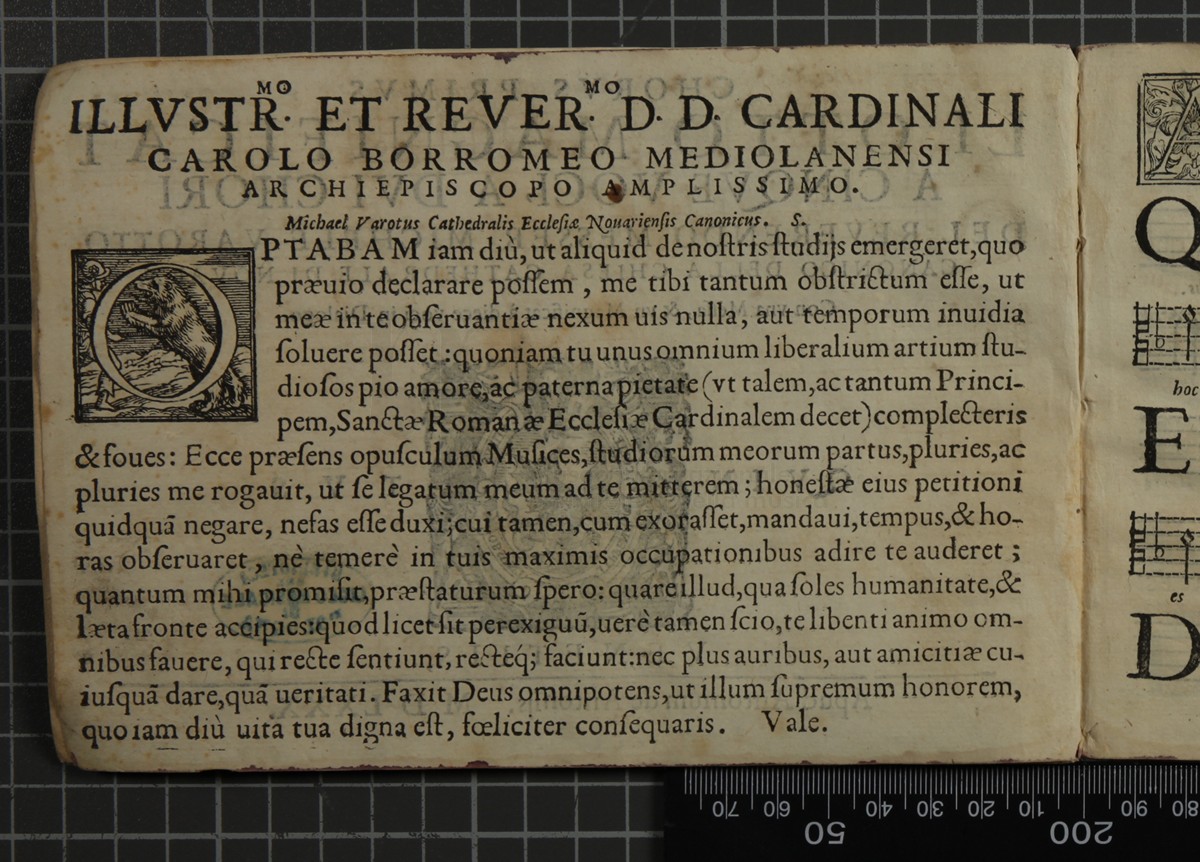 ILLVSTR.MO ET REVER.MO D. D. CARDINALI
CAROLO BORROMEO MEDIOLANENSI
ARCHIEPISCOPO AMPLISSIMO.
Michael Varotus Cathedralis Ecclesiæ Nouariensis Canonicus. S.
OPTABAM iam diù, ut aliquid de nostris studijs emergeret, quo
præuio declarare possem, me tibi tantum obstrictum esse, ut
meæ in te obseruantiæ nexum uis nulla, aut temporum inuidia
soluere posset: quoniam tu unus omnium liberalium artium stu-
diosos pio amore, ac paterna pietate (vt talem, ac tantum Princi-
pem, Sanctæ Romanæ Ecclesiæ Cardinalem decet) complecteris
& foues: Ecce præsens opusculum Musices, studiorum meorum partus, pluries, ac
pluries me rogauit, ut se legatum meum ad te mitterem; honestæ eius petitioni
quidquā negare, nefas esse duxi; cui tamen, cum exorasset, mandaui, tempus, & ho-
ras obseruaret, nè temerè in tuis maximis occupationibus adire te auderet;
quantum mihi promisit, præstaturum spero: quare illud, qua soles humanitate, &
læta fronte accipies: quod licet sit perexiguū, uerè tamen scio, te libenti animo om-
nibus fauere, qui recte sentiunt, recteq́; faciunt: nec plus auribus, aut amicitiæ cu-
iusquā dare, quā ueritati. Faxit Deus omnipotens, ut illum supremum honorem,
quo iam diù uita tua digna est, fœliciter consequaris. Vale.
Q
hoc
E
es
D
70 60 50 40 30 20 10 200 90 80